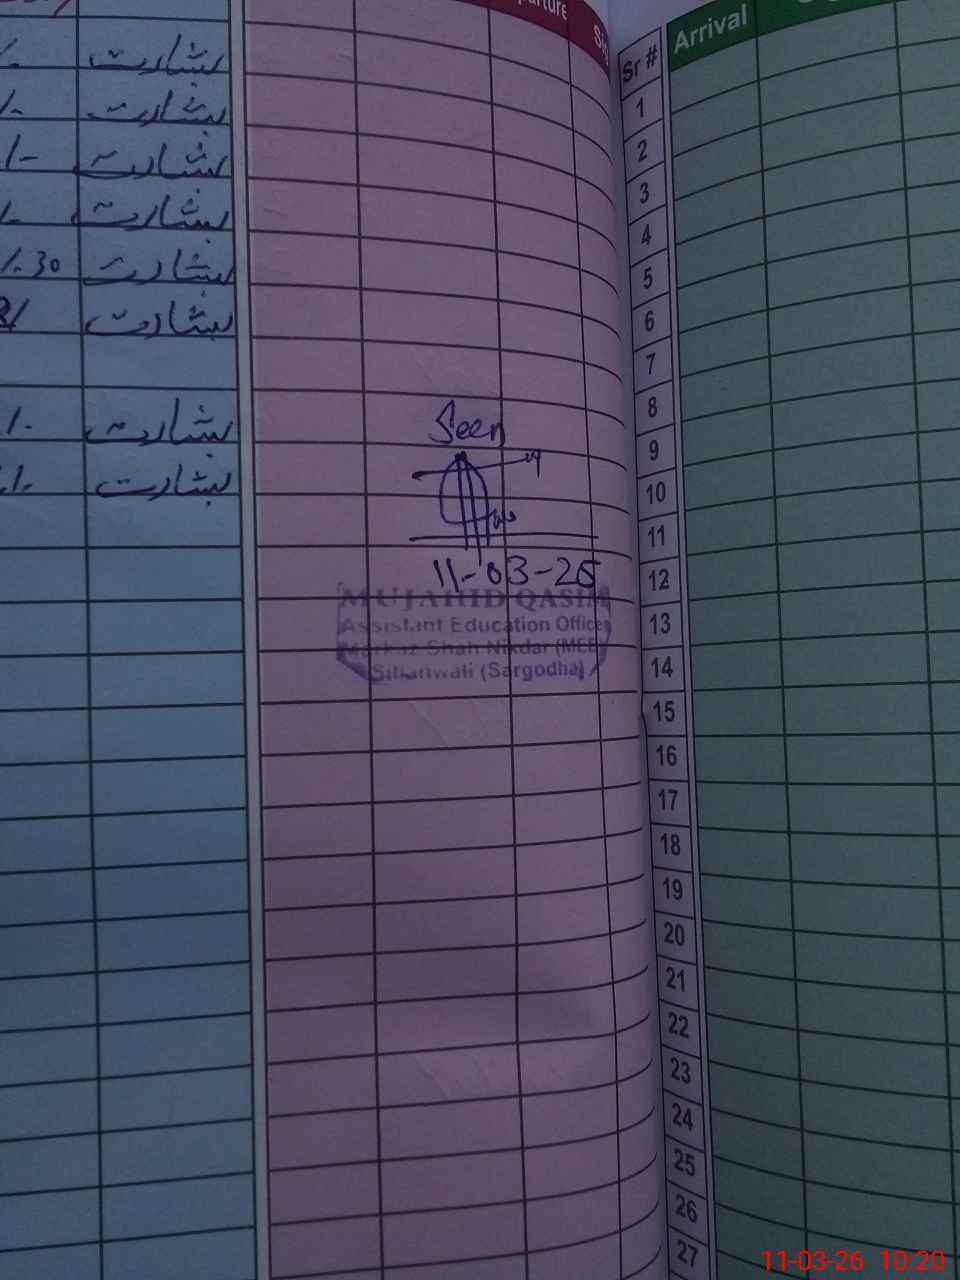 parture
Arrival
Sr #
بشارت
بشارت
بشارت
بشارت
30 بشارت
بشارت
بشارت
بشارت
Seen
11-03-26
MUJAHID QASIM
Assistant Education Officer
Markaz Shah Nikdar (MEE)
Sillanwali (Sargodha)
1
2
3
4
5
6
7
8
9
10
11
12
13
14
15
16
17
18
19
20
21
22
23
24
25
26
27
11-03-26 10:20